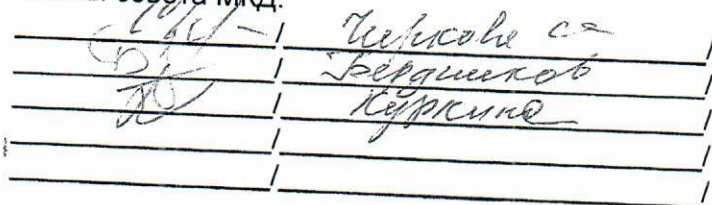 совета МКД:
/ Чиркова са /
/ Бердников /
/ Куркина /
/ /
/ /